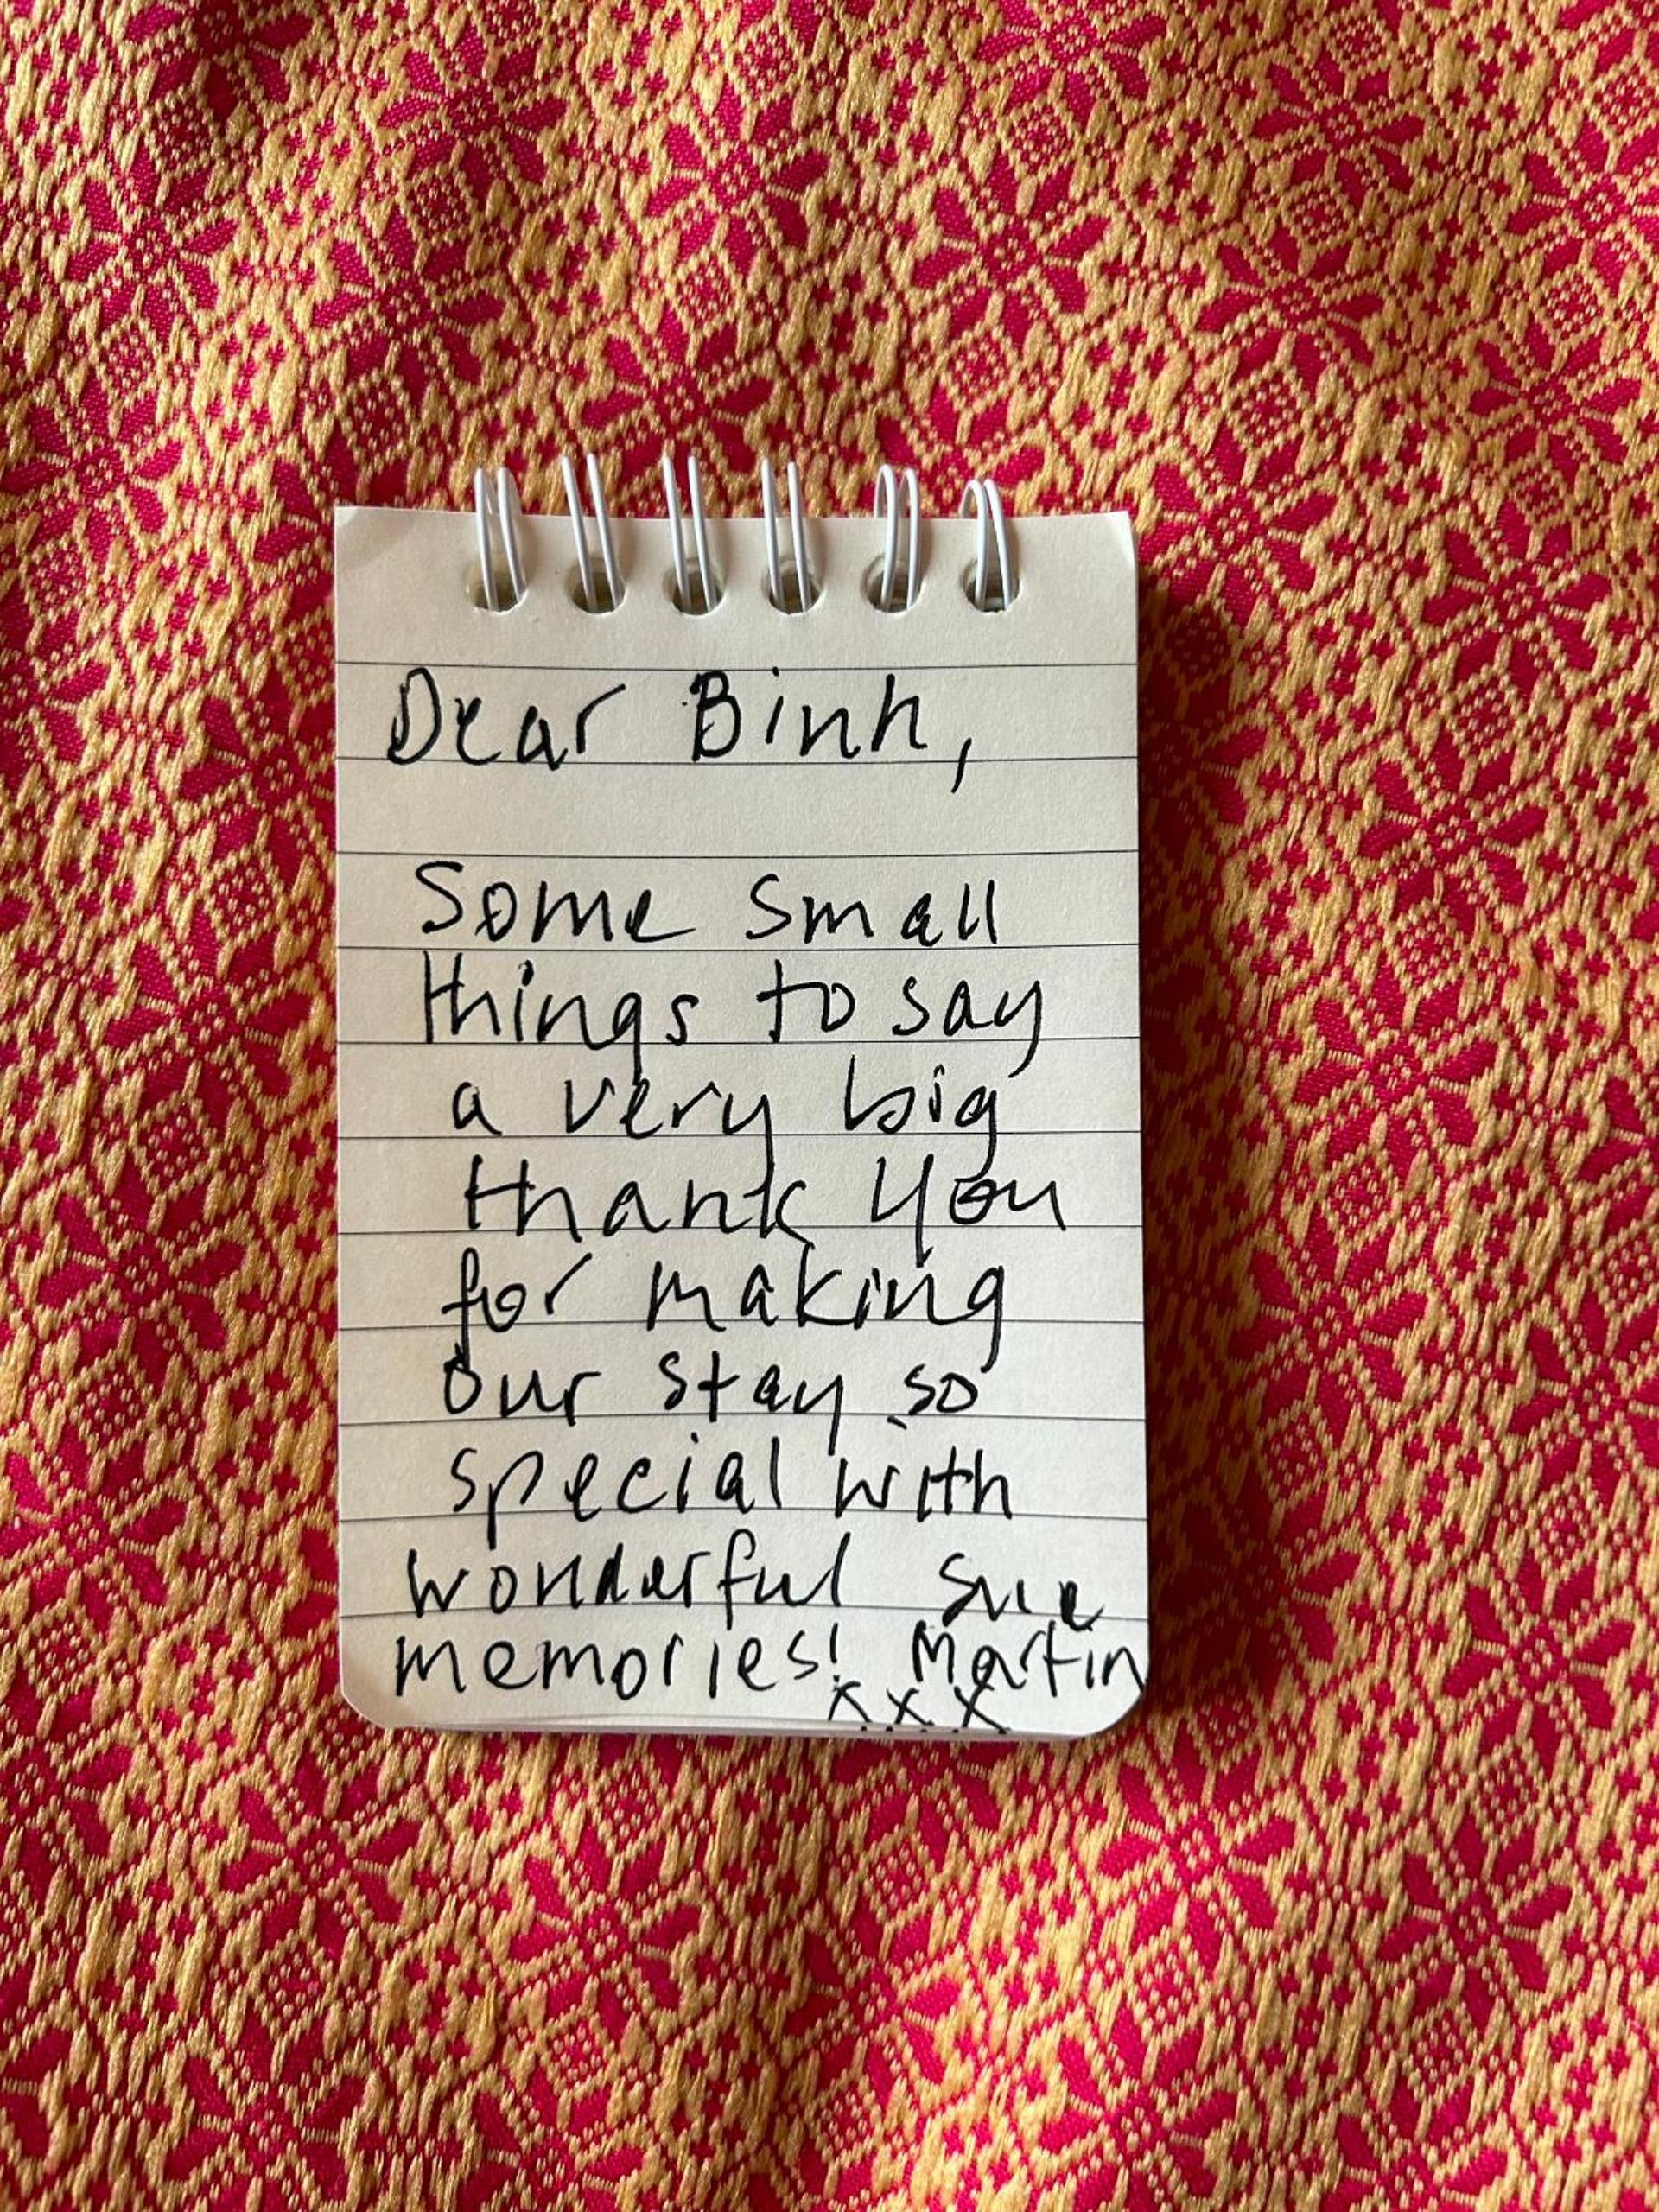 Dear Binh,
Some small
things to say
a very big
thank you
for making
our stay so
special with
wonderful Sue
memories! Martin
xxx